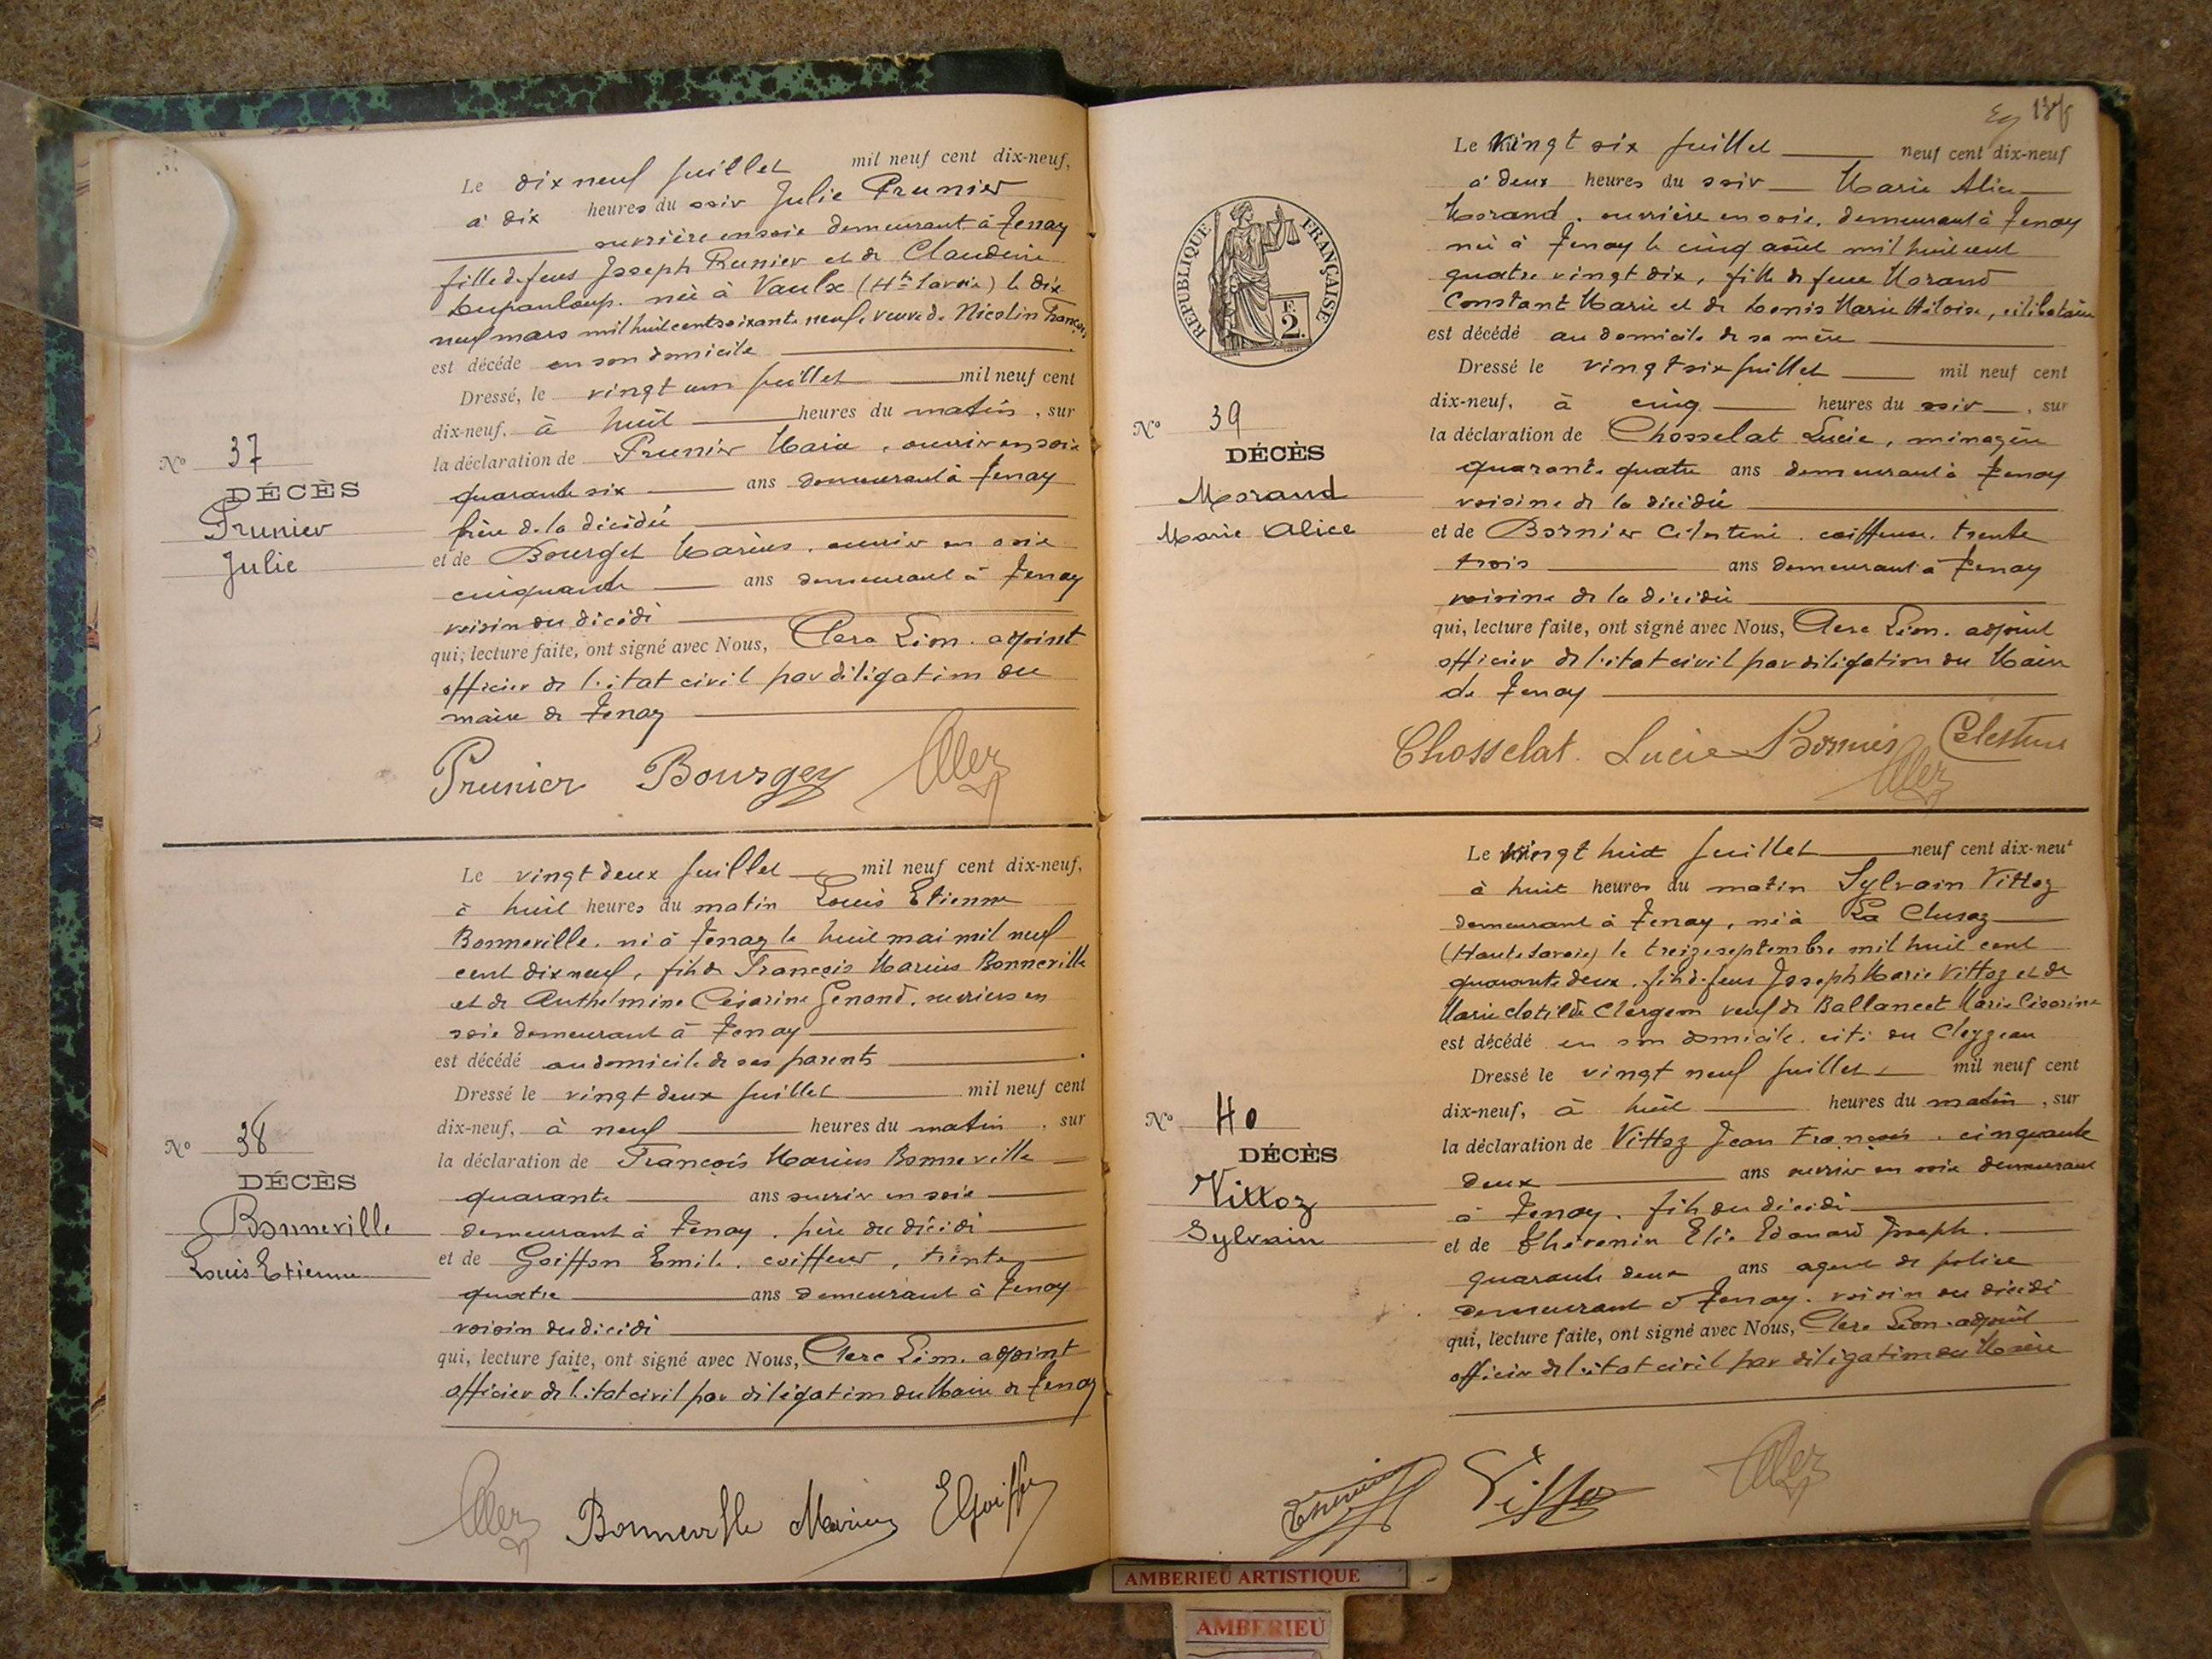 Le dix neuf juillet mil neuf cent dix-neuf,
à dix heures du soir Julie Prunier
ouvrière en soie demeurant à Tenay
fille de feus Joseph Prunier et de Claudine
Dupanloup. née à Vaulx (Hte Savoie) le dix
neuf mars mil huit cent soixante neuf, veuve de Nicolin François
est décédé en son domicile
Dressé, le vingt un juillet mil neuf cent
dix-neuf, à huit heures du matin, sur
la déclaration de Prunier Maria, ouvrier en soie
quarante six ans demeurant à Tenay
N° 37
DÉCÈS
Prunier
Julie
frère de la décédée
et de Bourget Marius. ouvrier en soie
cinquante ans demeurant à Tenay
voisin du décédé
qui, lecture faite, ont signé avec Nous, Clerc Léon. adjoint
officier de l'état civil par délégation du
maire de Tenay
Prunier Bourgey
Le vingt deux juillet mil neuf cent dix-neuf,
à huit heures du matin Louis Etienne
Bonneville. né à Tenay le huit mai mil neuf
cent dix neuf, fils de François Marius Bonneville
et de Anthelmine Césarine Genand. ouvriers en
soie demeurant à Tenay
est décédé au domicile de ses parents
Dressé le vingt deux juillet mil neuf cent
dix-neuf, à neuf heures du matin, sur
la déclaration de François Marius Bonneville
quarante ans ouvrier en soie
demeurant à Tenay. père du décédé
N° 38
DÉCÈS
Bonneville
Louis Etienne
et de Goiffon Emile. coiffeur, trente
quatre ans demeurant à Tenay
voisin du décédé
qui, lecture faite, ont signé avec Nous, Clerc Léon. adjoint
officier de l'état civil par délégation du Maire de Tenay
Bonneville Marius EGoiffon
Le vingt six juillet neuf cent dix-neuf
à deux heures du soir Marie Alice
Morand. ouvrière en soie. demeurant à Tenay
née à Tenay le cinq août mil huit cent
quatre vingt dix, fille de feue Morand
Constant Marie et de Marie Héloïse, célibataire
est décédé au domicile de sa mère
Dressé le vingt six juillet mil neuf cent
dix-neuf, à cinq heures du soir, sur
la déclaration de Chosselat Lucie, ménagère
quarante quatre ans demeurant à Tenay
voisine de la décédée
et de Bornier Célestine. coiffeuse. trente
trois ans demeurant à Tenay
voisine de la décédée
qui, lecture faite, ont signé avec Nous, Clerc Léon. adjoint
officier de l'état civil par délégation du Maire
de Tenay
RÉPUBLIQUE FRANÇAISE
2
N° 39
DÉCÈS
Morand
Marie Alice
Chosselat. Lucie Bornier Célestine
Le vingt huit juillet neuf cent dix-neuf
à huit heures du matin Sylvain Vittoz
demeurant à Tenay, né à La Clusaz
(Haute Savoie) le treize septembre mil huit cent
quarante deux. fils de feus Joseph Marie Vittoz et de
Marie Clotilde Clergeon veuf de Ballancet Marie Césarine
est décédé en son domicile. cité du Cleyzeau
Dressé le vingt neuf juillet mil neuf cent
dix-neuf, à huit heures du matin, sur
la déclaration de Vittoz Jean François. cinquante
deux ans ouvrier en soie demeurant
à Tenay. fils du décédé
N° 40
DÉCÈS
Vittoz
Sylvain
et de Thévenin Elie Edouard Joseph.
quarante deux ans agent de police
demeurant à Tenay. voisin du décédé
qui, lecture faite, ont signé avec Nous, Clerc Léon. adjoint
officier de l'état civil par délégation du Maire
Thévenin Vittoz
AMBERIEU ARTISTIQUE
AMBERIEU